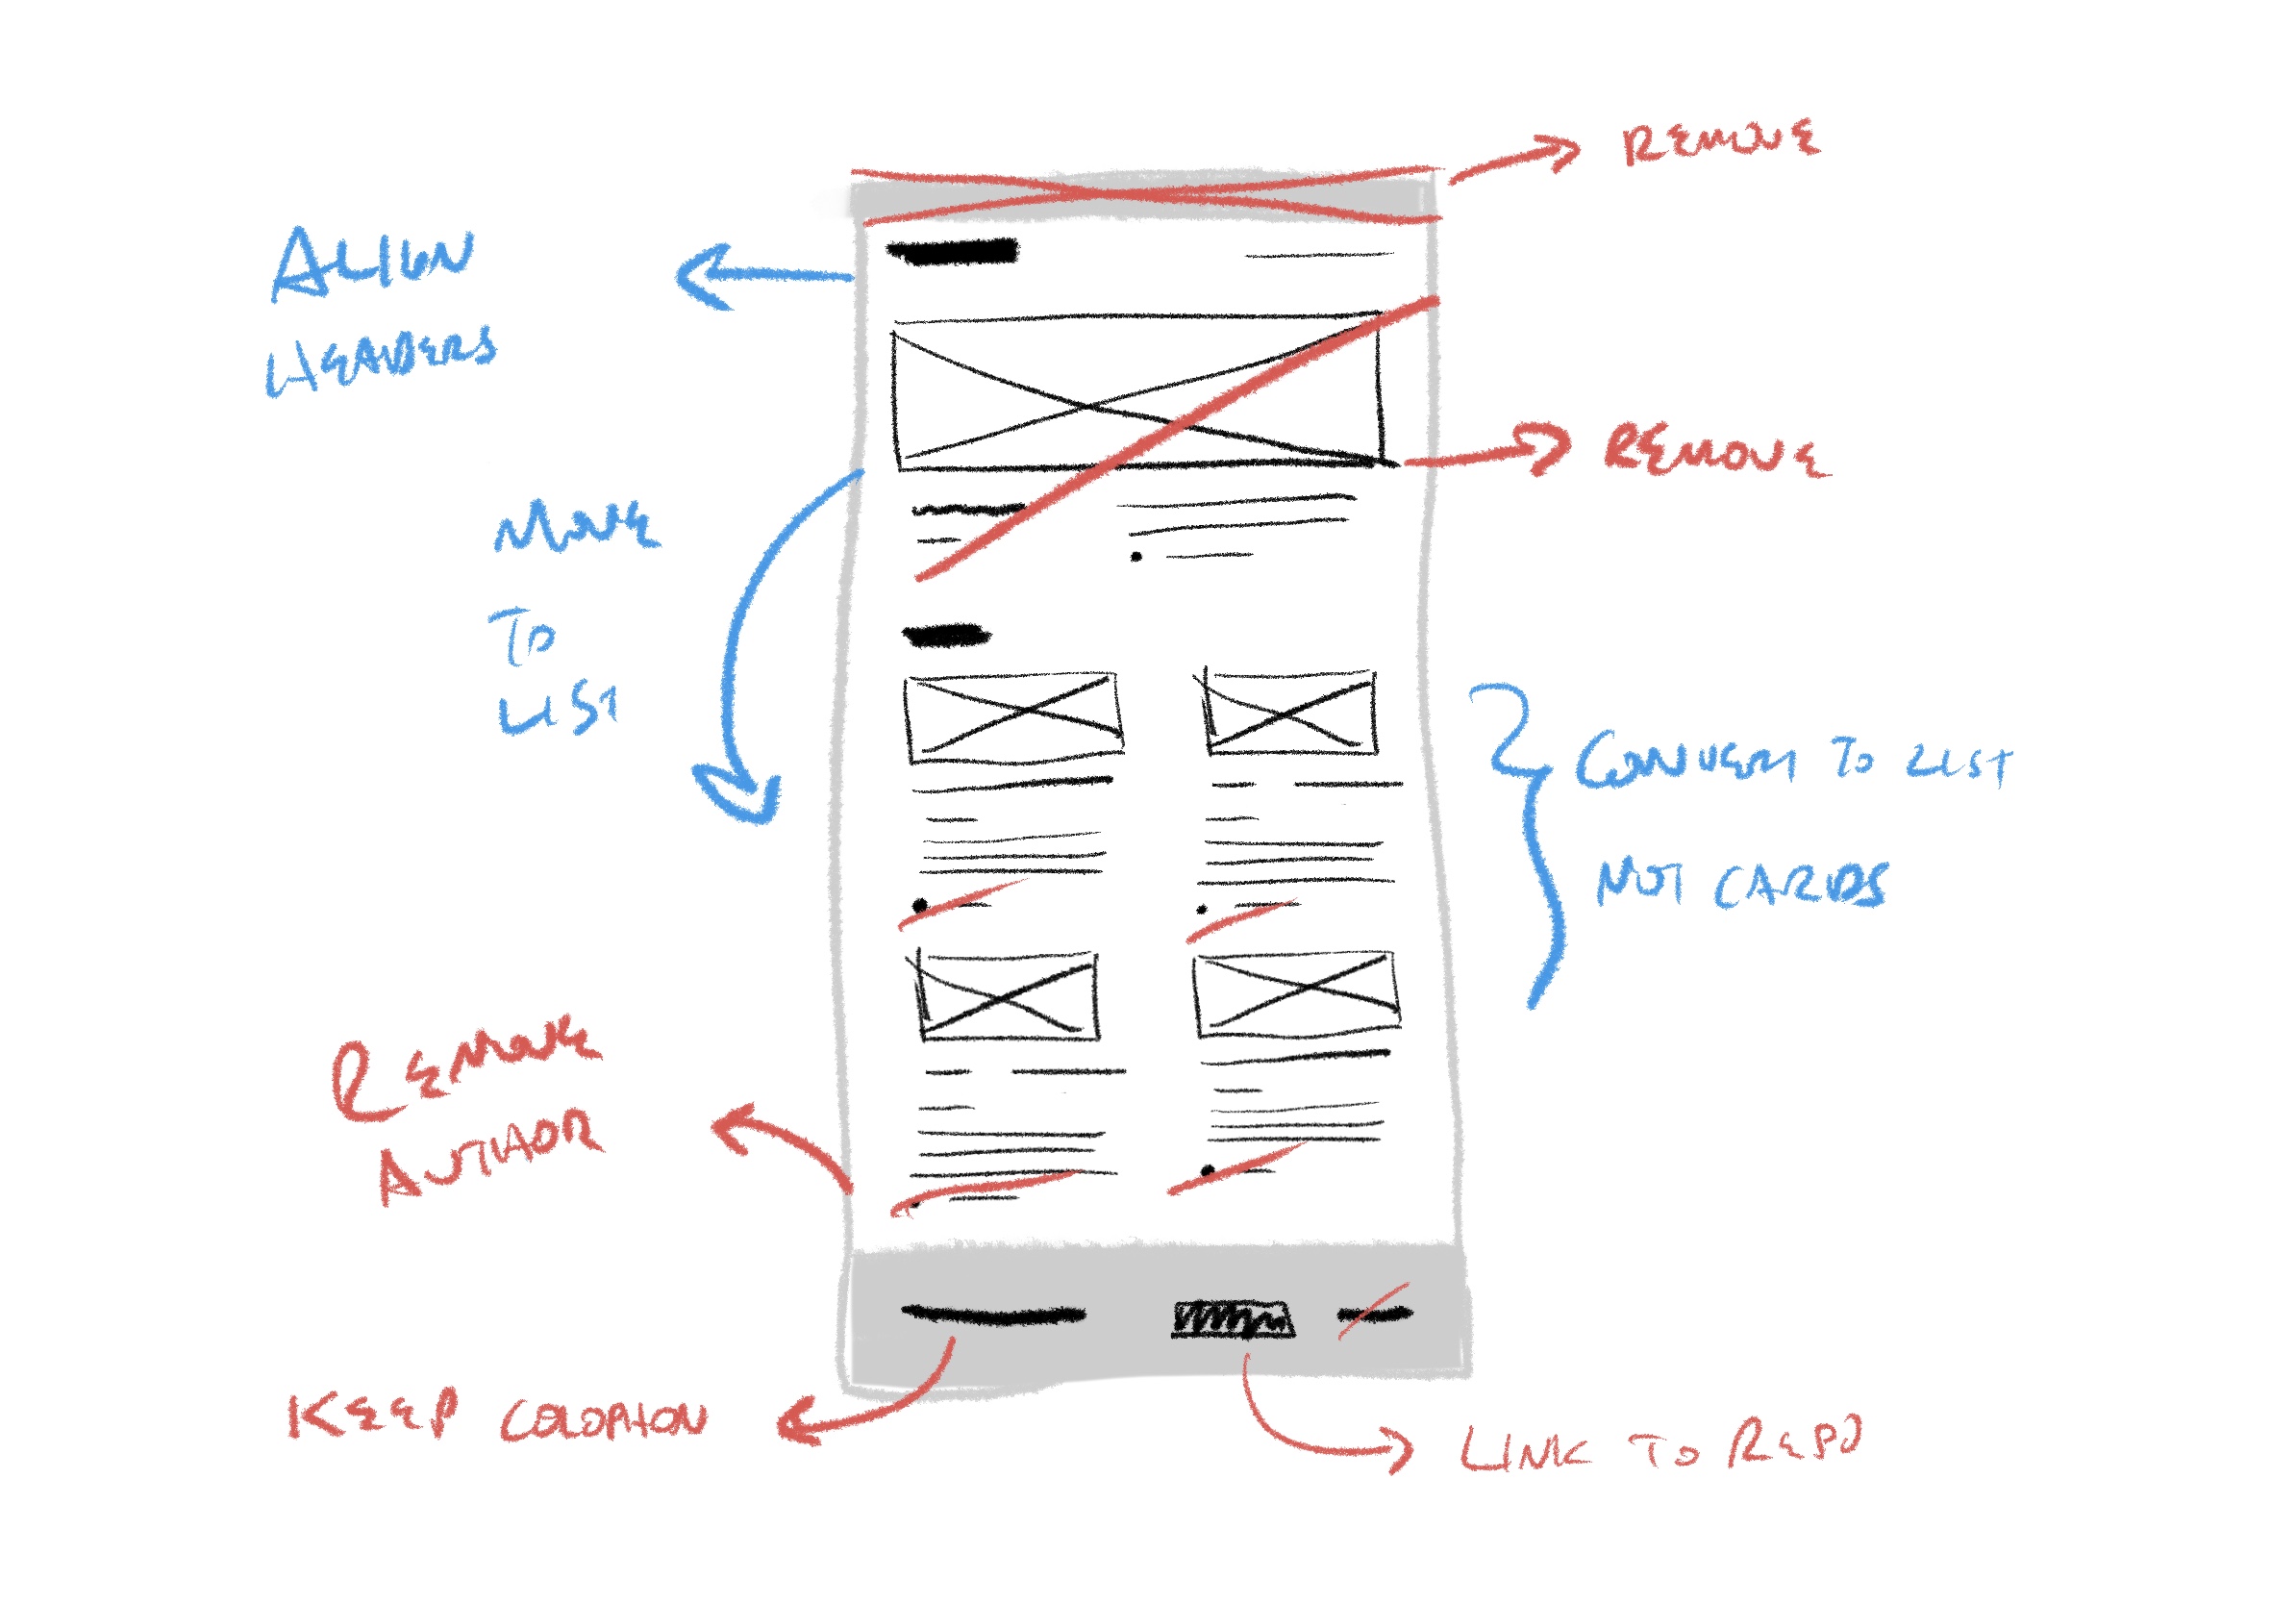 REMOVE
ALIGN
HEADERS
REMOVE
MOVE
TO
LIST
CONVERT TO LIST
NOT CARDS
REMOVE
AUTHOR
KEEP COLOPHON
LINK TO REPO